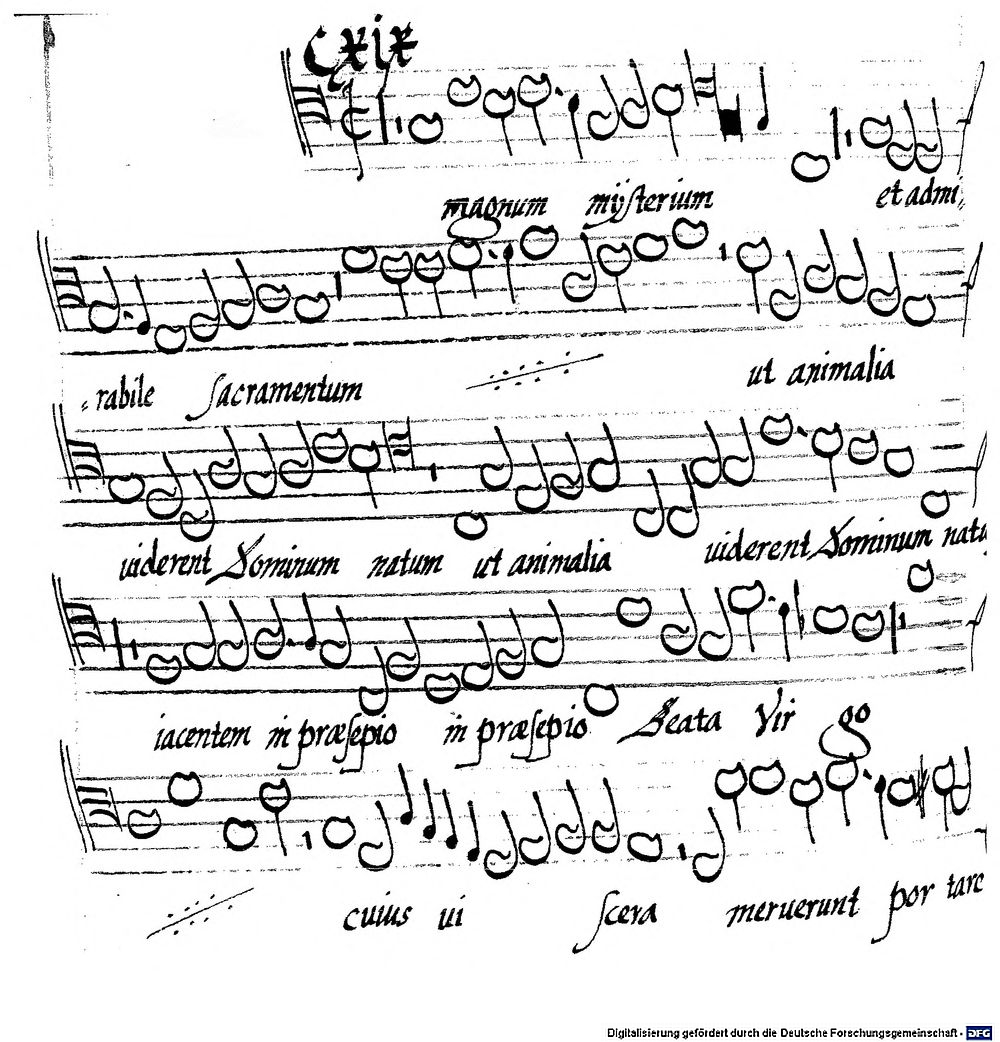 Cxix
magnum mÿsterium et admi,,
,,rabile sacramentum ut animalia
uiderent Dominum natum ut animalia uiderent Dominum natu
iacentem in præsepio in præsepio Beata Vir go
cuius ui scera meruerunt por tare
Digitalisierung gefördert durch die Deutsche Forschungsgemeinschaft - DFG